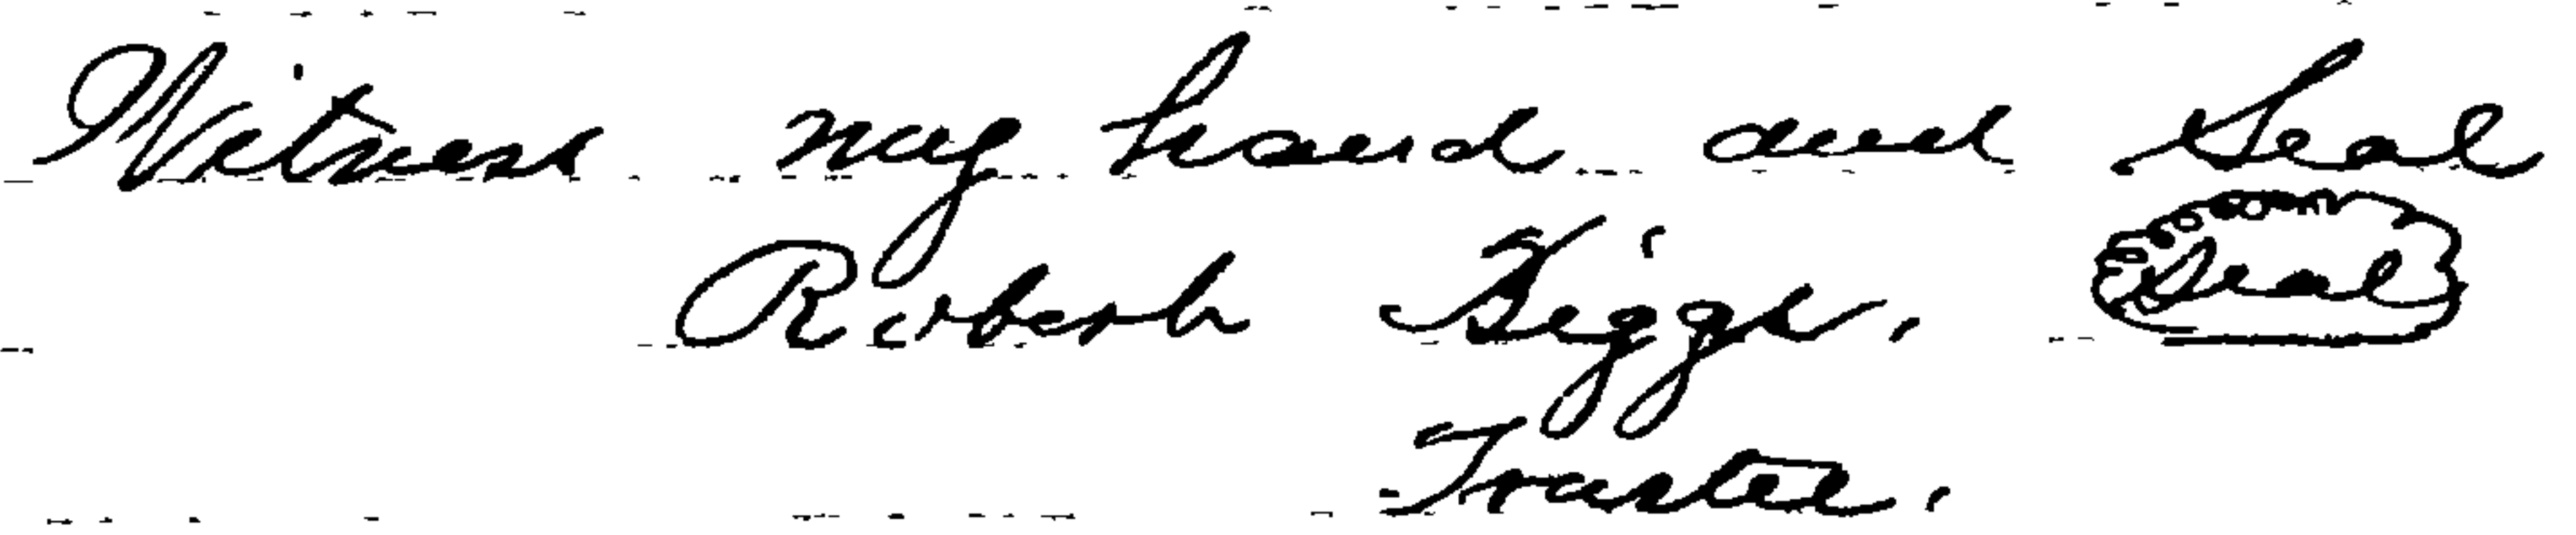 Witness my hand and Seal
Robert Biggs. Seal
Trustee.